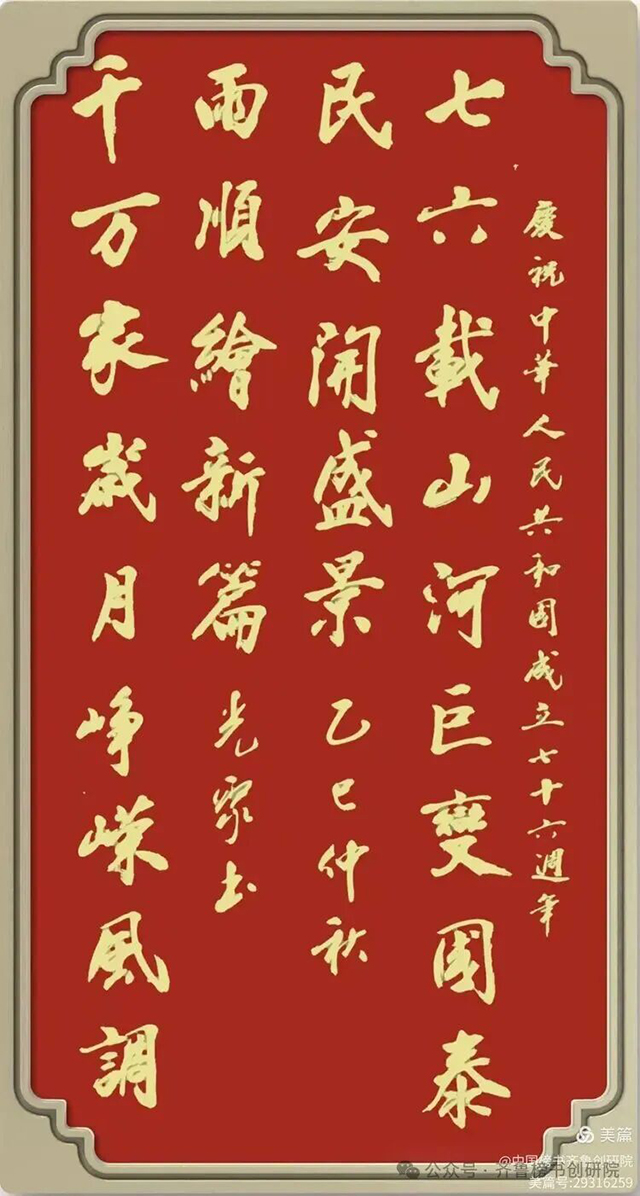 慶祝中華人民共和國成立七十六週年
七六載山河巨變國泰
民安開盛景 乙巳仲秋
千万家歲月崢嶸風調
雨順繪新篇 光书
美篇
@中国榜书齐鲁创研院
公众号 · 齐鲁榜书创研院
美篇号:29316259